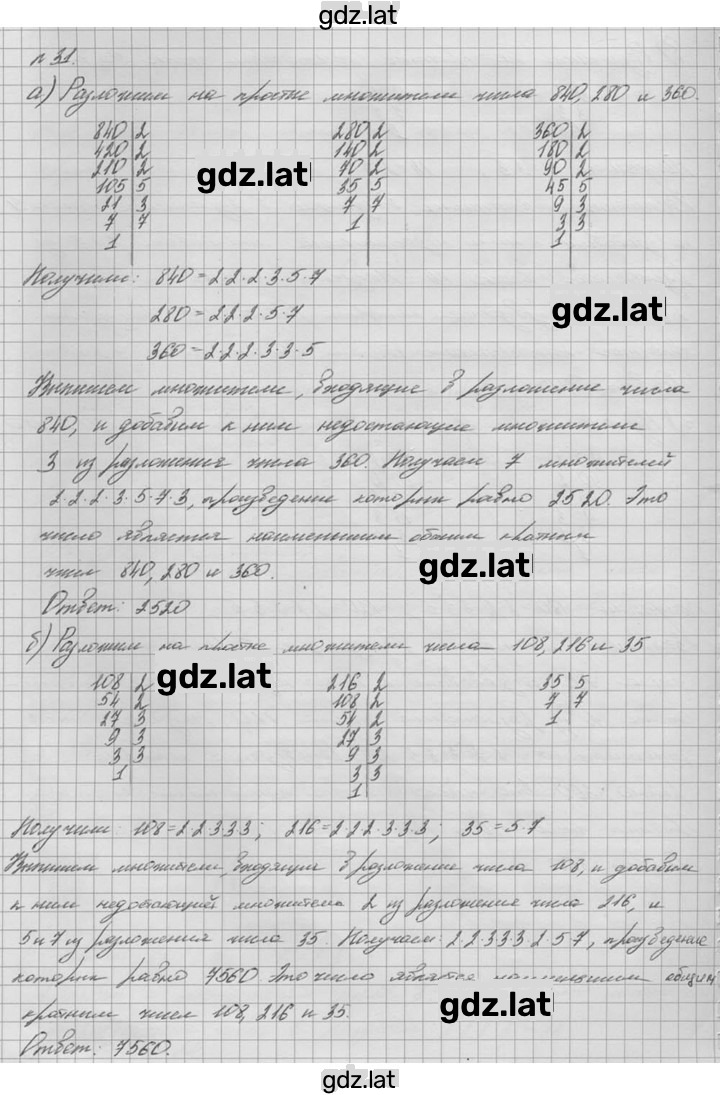 gdz.lat
п 31.
а) Разложим на простые множители числа 840, 280 и 360.
840|2 280|2 360|2
420|2 140|2 180|2
210|2 70|2 90|2
105|5 35|5 45|5
21|3 7|7 9|3
7|7 1 3|3
1 1
gdz.lat
Получили: 840=2·2·2·3·5·7
280=2·2·2·5·7
gdz.lat
360=2·2·2·3·3·5
Выпишем множители, входящие в разложение числа
840, и добавим к ним недостающие множители
3 из разложения числа 360. Получаем 7 множителей
2·2·2·3·5·7·3, произведение которых равно 2520. Это
число является наименьшим общим кратным
чисел 840, 280 и 360.
gdz.lat
Ответ: 2520
б) Разложим на простые множители числа 108, 216 и 35
gdz.lat
108|2 216|2 35|5
54|2 108|2 7|7
27|3 54|2 1
9|3 27|3
3|3 9|3
1 3|3
1
Получили: 108=2·2·3·3·3; 216=2·2·2·3·3·3; 35=5·7
Выпишем множители, входящие в разложение числа 108, и добавим
к ним недостающий множитель 2 из разложения числа 216, и
5 и 7 из разложения числа 35. Получаем: 2·2·3·3·3·2·5·7, произведение
которых равно 7560. Это число является наименьшим общим
кратным чисел 108, 216 и 35.
gdz.lat
Ответ: 7560.
gdz.lat